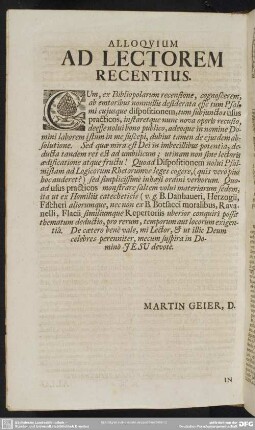 ALLOQVIUM
AD LECTOREM
RECENTIUS.
CUm, ex Bibliopolarum recensione, cognoscerem,
ab emtoribus nonnullis desiderata esse tum Psal-
mi cujusque dispositionem, tum subjunctos usus
practicos, instaretque nunc nova operis recusio,
deesse nolui bono publico, adeoque in nomine Do-
mini laborem istum in me suscepi, dubius tamen de ejusdem ab-
solutione. Sed quæ mira est Dei in imbecillibus potentia, de-
ducta tandem res est ad umbilicum; utinam non sine lectoris
ædificatione atque fructu! Quoad Dispositionem nolui Psal-
mistam ad Logicorum Rhetorumve leges cogere, (quis vero pius
hoc auderet?) sed simplicissimè inhæsi ordini verborum. Quo-
ad usus practicos monstrare saltem volui materiarum sedem;
ita ut ex Homiliis catecheticis (v. g. B. Danhaueri, Herzogii,
Fischeri aliorumque, nec non ex B. Botsacci moralibus, Rava-
nelli, Flacii similiumque Repertoriis uberior conquiri possit
thematum deductio, pro rerum, temporum aut locorum exigen-
tiâ. De cætero benè vale, mi Lector, & ut illic Deum
celebres perenniter, mecum suspira in Do-
minô JESU devotè.
MARTIN GEIER, D.
IN